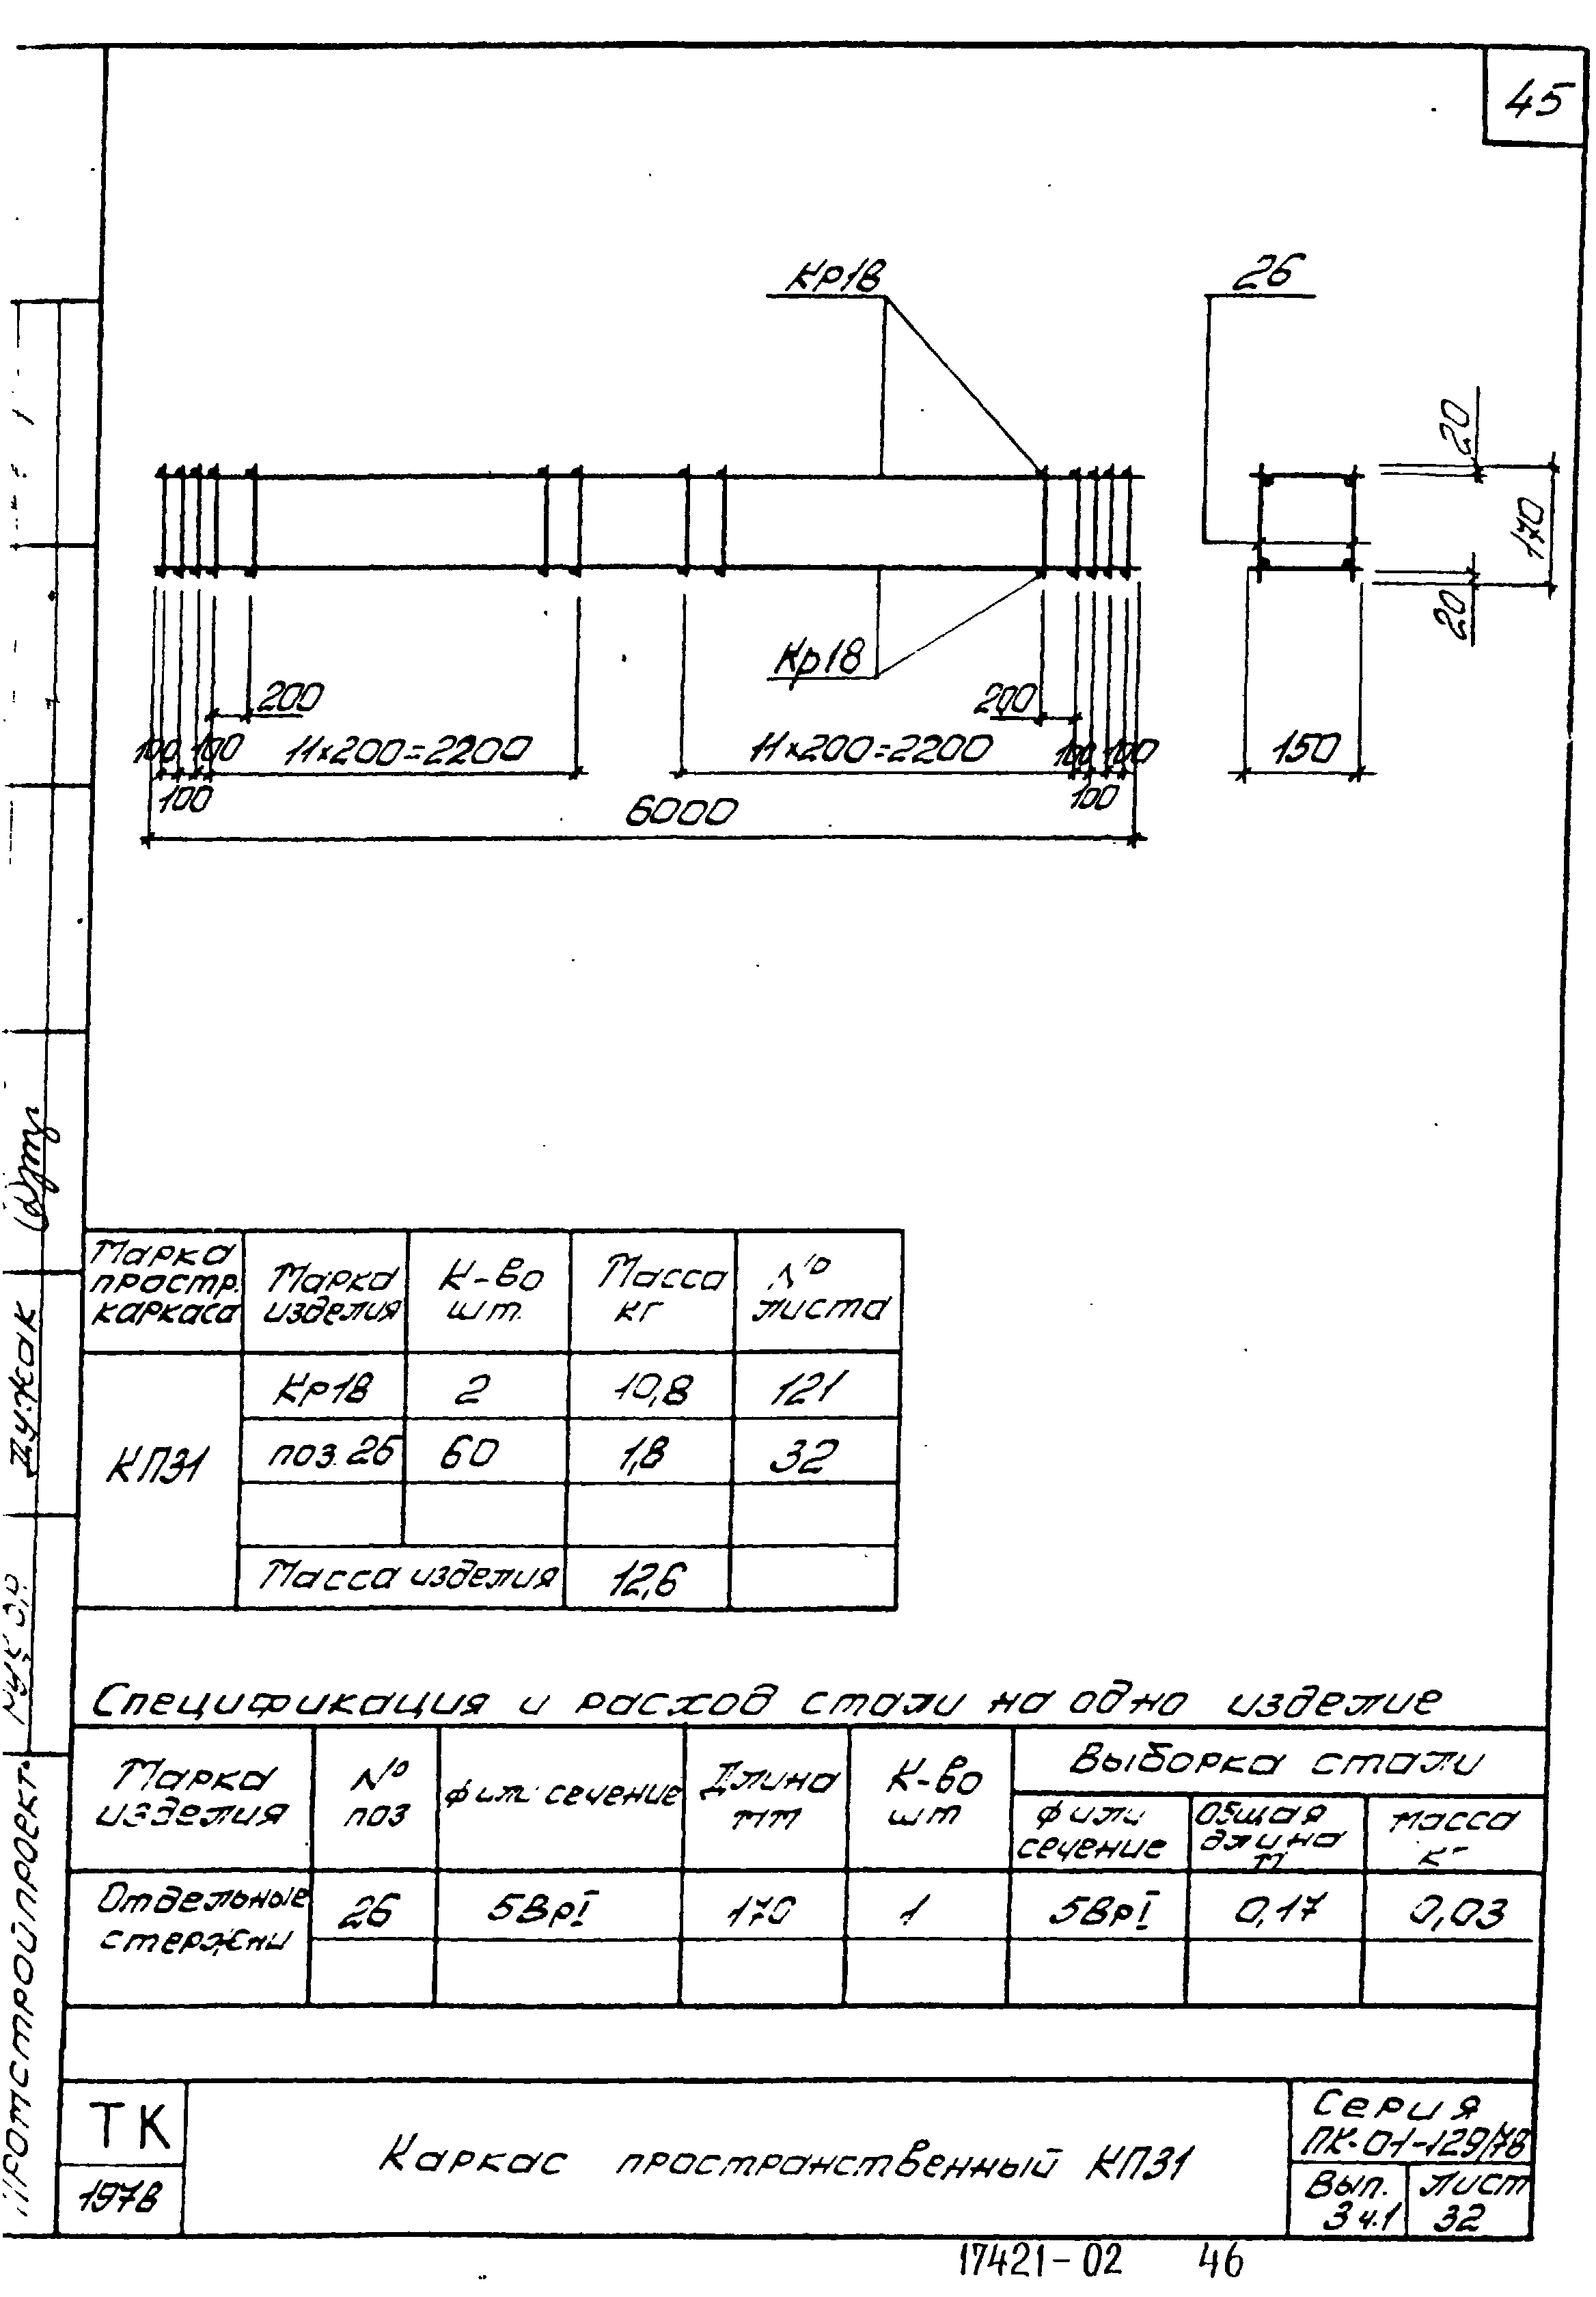 45
Кр18
26
20
170
20
Кр18
200
200
100
100
11×200=2200
11×200=2200
100
100
150
100
100
6000
Марка простр. каркаса
Марка изделия
К-во шт.
Масса кг
№ листа
КП31
Кр18
2
10,8
121
поз. 26
60
1,8
32
Масса изделия
12,6
Спецификация и расход стали на одно изделие
Марка изделия
№ поз
ф или сечение
Длина мм
К-во шт
Выборка стали
ф или сечение
Общая длина м
Масса кг
Отдельные стержни
26
5ВрI
170
1
5ВрI
0,17
0,03
ТК
1978
Каркас пространственный КП31
Серия
ПК-01-129/78
Вып.
3 ч.1
Лист
32
17421-02
46
Промстройпроект